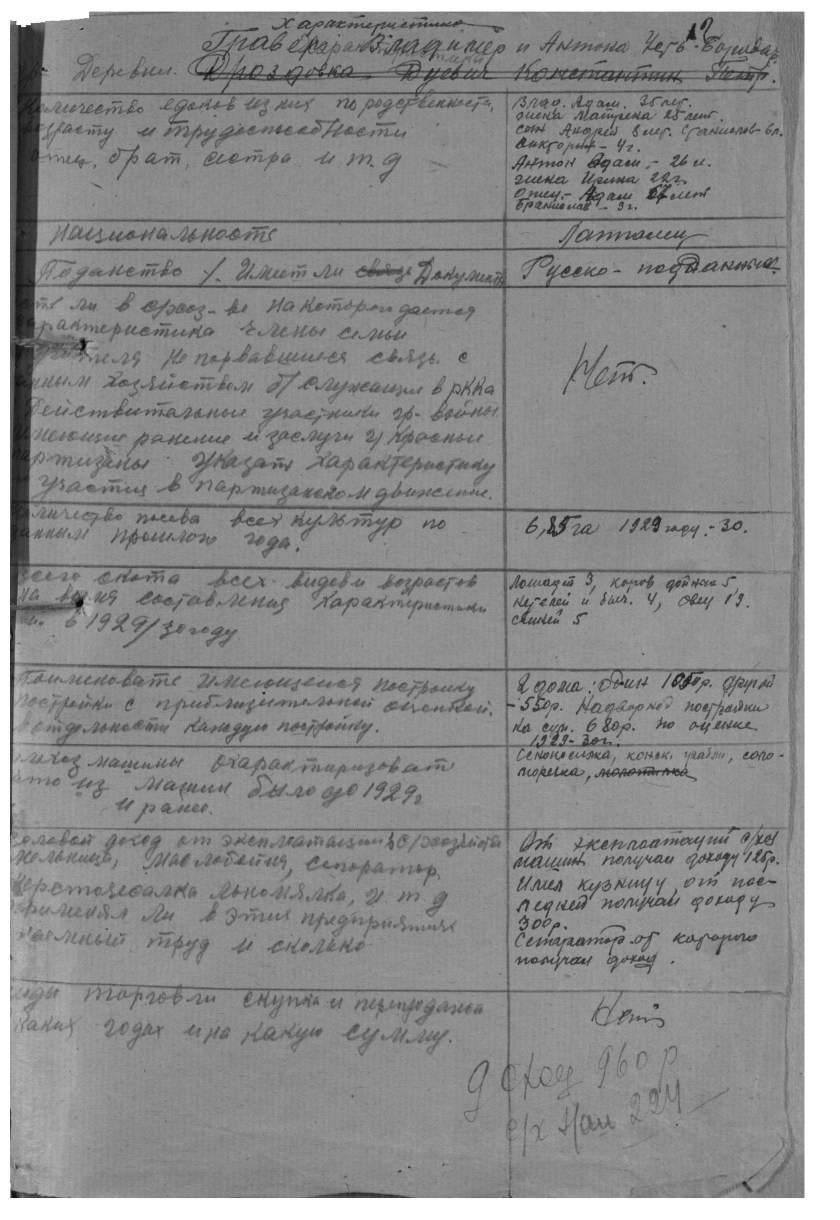 Характеристика
Гравер Владимер и Антона
Деревни. Дроздовка Константин Петр.
Количество едоков из них по родственности,
возрасту и трудоспособности
отец, брат, сестра и т.д
Влад. Адам. 35 лет.
жена 25 лет.
сын Андрей 8 лет. Станислов 6 л.
Виктория - 4 г.
Антон Адам. - 26 л.
жена Ирина 22 г.
Отец - Адам лет
Бранислав - 3 г.
Национальность
Латгалец
Поданство Имеет ли связь Документы
Русско-подданные.
есть ли в с/хоз-ве на которои дается
характеристика члены семьи
не порвавшиеся связь с
данным хозяйством б/ служащии в РККА
Действительные участники гр-войны
имеющие ранение и заслуги и красные
партизаны указать характеристику
участия в партизанском движение.
Нет.
Количество посева всех культур по
данным прошлого года.
6,85 га 1929 году - 30.
Всего скота всех видов и возрастов
на время составления характеристики
в 1929/30 году
Лошадей 3, коров дойных 5,
нетелей и быч. 4, овец 19.
свиней 5
Поименовать имеющейся постройку
постройки с приблизительной оценкой.
в отдельности каждую постройку.
2 дома: один р. другой
- 550р. Надворной постройки
на сум. 680р. по оценке
1929-30г.
с/хоз машины охарактиризоват
что из машин было до 1929г
и ранее.
Сенокосилка, конск. грабли, соло-
морезка, молотилка
Головой доход от эксплоатации с/хоз
мельница, маслобойня, сепоратор
Шерсточесалка льномялка, и т д
применял ли в этих предприятиях
наемный труд и сколько
От эксплоатаций с/хоз
машин получал доходу 125р.
Имел кузницу, от пос-
ледней получал доходу
300р.
Сепаратор от которого
получал доход.
виды торговли скупка и перепродажа
каких годах и на какую сумму.
Нет
доход 960 р
с/х нал 224